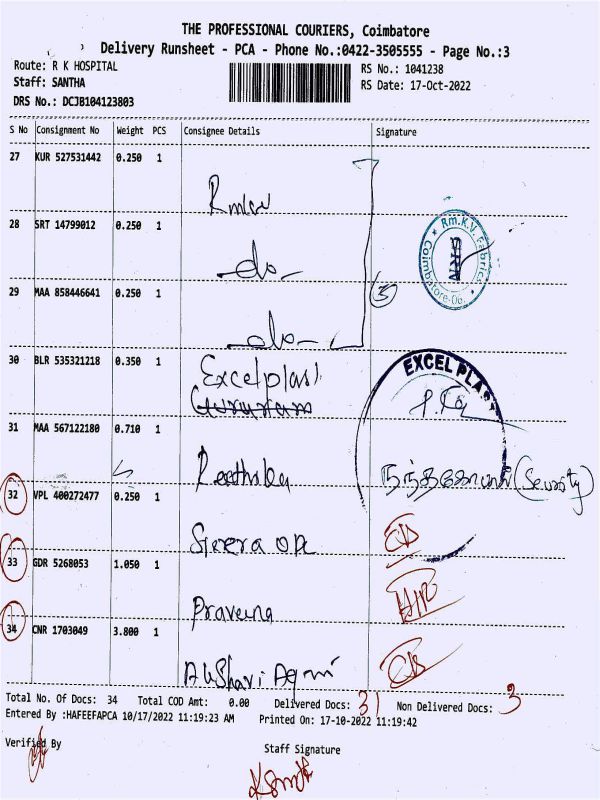 THE PROFESSIONAL COURIERS, Coimbatore
Delivery Runsheet - PCA - Phone No.:0422-3505555 - Page No.:3
Route: R K HOSPITAL
RS No.: 1041238
Staff: SANTHA
RS Date: 17-Oct-2022
DRS No.: DCJB104123803
S No Consignment No Weight PCS Consignee Details Signature
27 KUR 527531442 0.250 1
Rmkv
28 SRT 14799012 0.250 1
-do-
Rm.K.V. Fabrics
Coimbatore
29 MAA 858446641 0.250 1
-do-
3
30 BLR 535321218 0.350 1
Excelplast
EXCEL PLAST
Gururam
31 MAA 567122180 0.710 1
(Security)
32 VPL 400272477 0.250 1
33 GDR 5268053 1.050 1
Praveena
34 CNR 1703049 3.800 1
Total No. Of Docs: 34 Total COD Amt: 0.00 Delivered Docs: 31 Non Delivered Docs: 3
Entered By :HAFEEFAPCA 10/17/2022 11:19:23 AM Printed On: 17-10-2022 11:19:42
Verified By Staff Signature